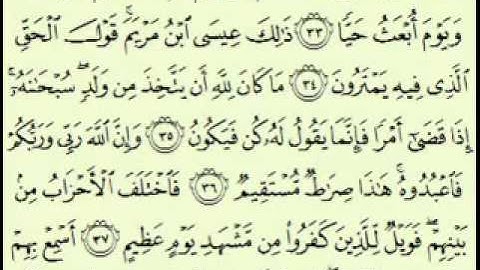 وَيَوْمَ أُبْعَثُ حَيًّا ٣٣ ذَٰلِكَ عِيسَى ٱبْنُ مَرْيَمَ ۚ قَوْلَ ٱلْحَقِّ
ٱلَّذِى فِيهِ يَمْتَرُونَ ٣٤ مَا كَانَ لِلَّهِ أَن يَتَّخِذَ مِن وَلَدٍ ۖ سُبْحَٰنَهُۥٓ ۚ
إِذَا قَضَىٰٓ أَمْرًا فَإِنَّمَا يَقُولُ لَهُۥ كُن فَيَكُونُ ٣٥ وَإِنَّ ٱللَّهَ رَبِّى وَرَبُّكُمْ
فَٱعْبُدُوهُ ۚ هَٰذَا صِرَٰطٌ مُّسْتَقِيمٌ ٣٦ فَٱخْتَلَفَ ٱلْأَحْزَابُ مِنۢ
بَيْنِهِمْ ۖ فَوَيْلٌ لِّلَّذِينَ كَفَرُوا۟ مِن مَّشْهَدِ يَوْمٍ عَظِيمٍ ٣٧ أَسْمِعْ بِهِمْ